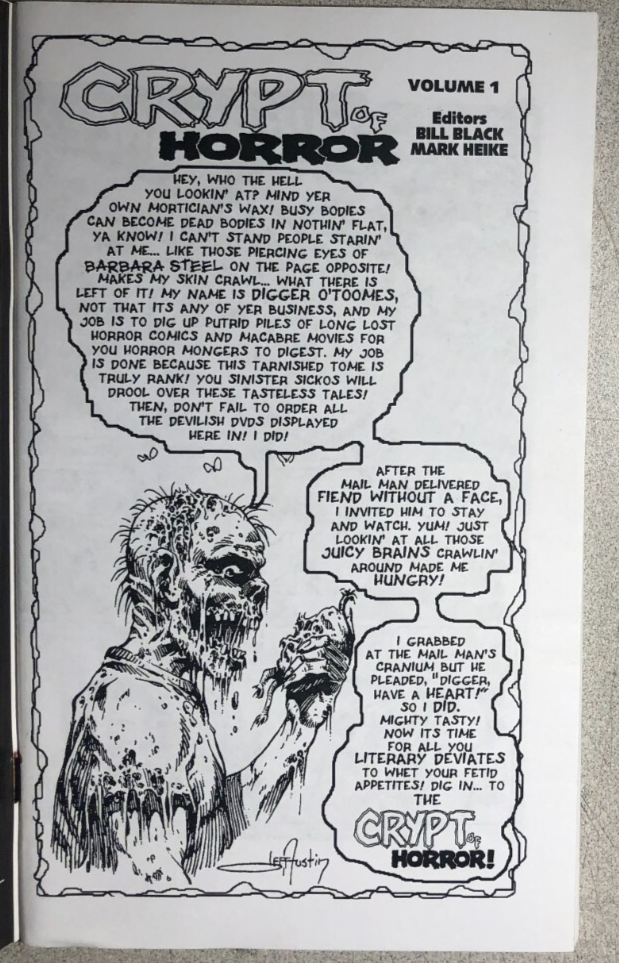 CRYPT OF
HORROR
VOLUME 1
Editors
BILL BLACK
MARK HEIKE
HEY, WHO THE HELL
YOU LOOKIN' AT? MIND YER
OWN MORTICIAN'S WAX! BUSY BODIES
CAN BECOME DEAD BODIES IN NOTHIN' FLAT,
YA KNOW! I CAN'T STAND PEOPLE STARIN'
AT ME... LIKE THOSE PIERCING EYES OF
BARBARA STEEL ON THE PAGE OPPOSITE!
MAKES MY SKIN CRAWL... WHAT THERE IS
LEFT OF IT! MY NAME IS DIGGER O'TOOMES,
NOT THAT ITS ANY OF YER BUSINESS, AND MY
JOB IS TO DIG UP PUTRID PILES OF LONG LOST
HORROR COMICS AND MACABRE MOVIES FOR
YOU HORROR MONGERS TO DIGEST. MY JOB
IS DONE BECAUSE THIS TARNISHED TOME IS
TRULY RANK! YOU SINISTER SICKOS WILL
DROOL OVER THESE TASTELESS TALES!
THEN, DON'T FAIL TO ORDER ALL
THE DEVILISH DVDS DISPLAYED
HERE IN! I DID!
AFTER THE
MAIL MAN DELIVERED
FIEND WITHOUT A FACE,
I INVITED HIM TO STAY
AND WATCH. YUM! JUST
LOOKIN' AT ALL THOSE
JUICY BRAINS CRAWLIN'
AROUND MADE ME
HUNGRY!
I GRABBED
AT THE MAIL MAN'S
CRANIUM BUT HE
PLEADED, "DIGGER,
HAVE A HEART!"
SO I DID.
MIGHTY TASTY!
NOW ITS TIME
FOR ALL YOU
LITERARY DEVIATES
TO WHET YOUR FETID
APPETITES! DIG IN... TO
THE
CRYPT OF
HORROR!
JEFF Austin